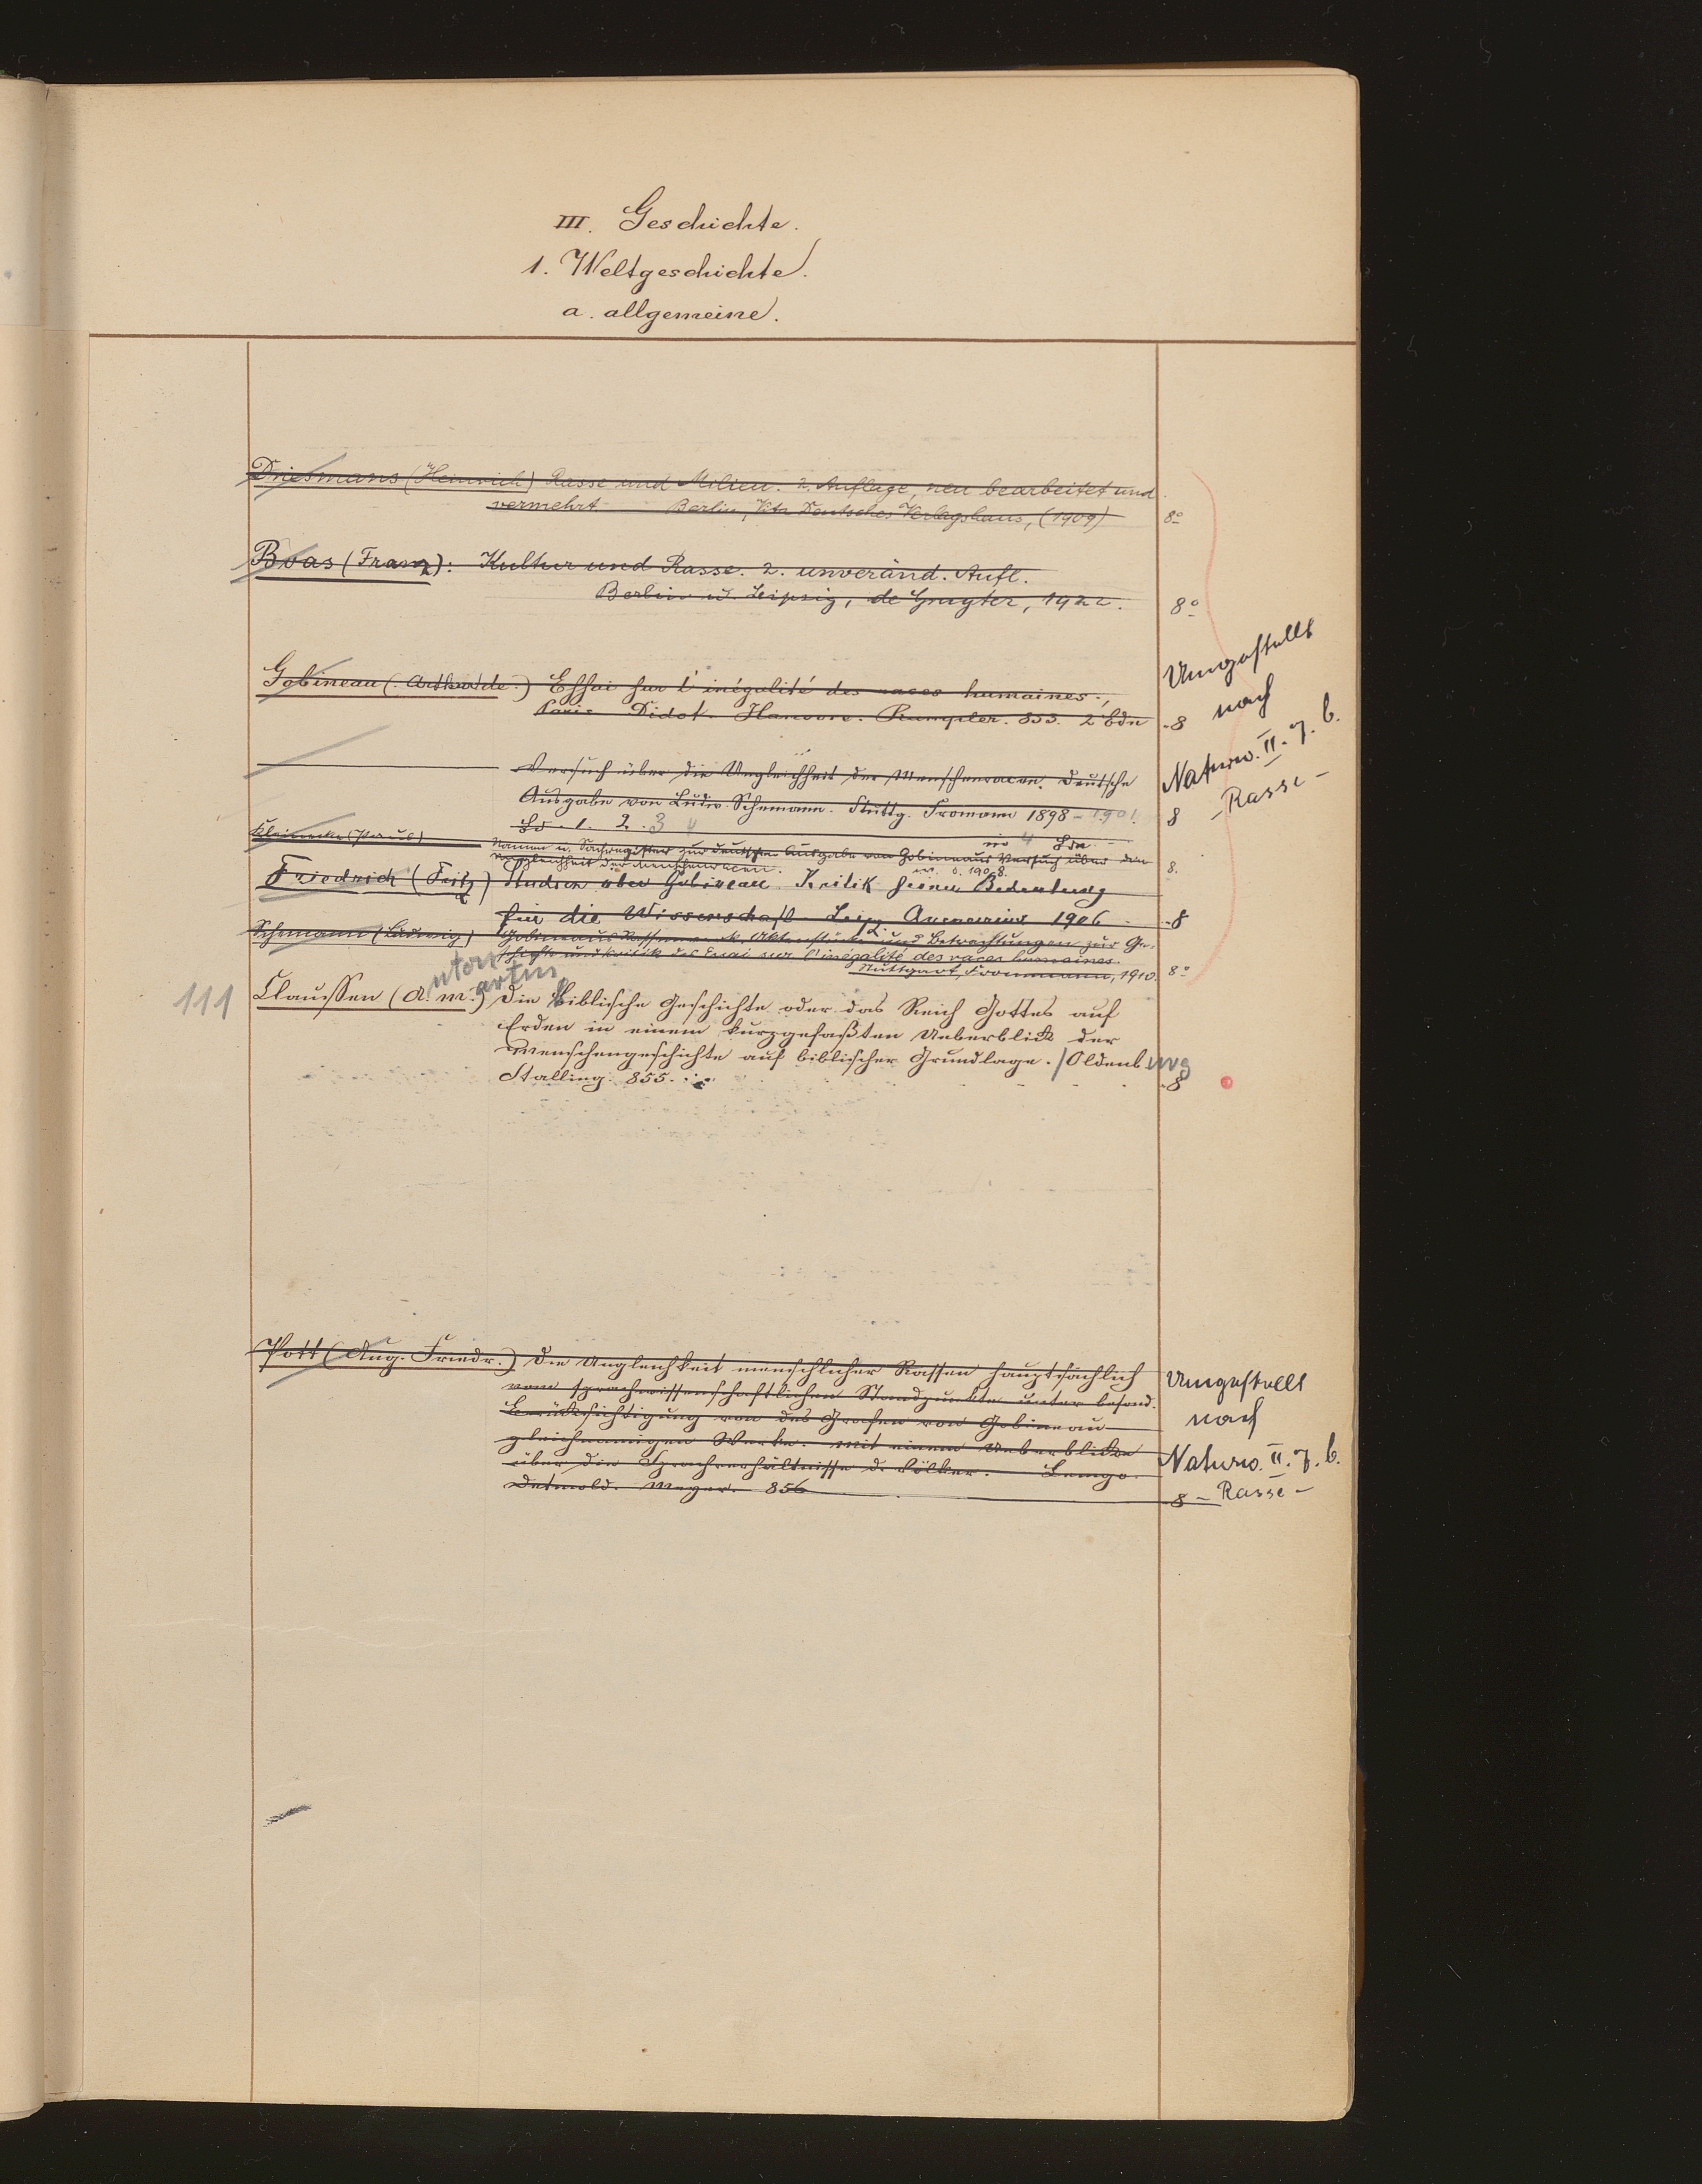 III. Geschichte.
1. Weltgeschichte.
a. allgemeine.
Driesmans (Heinrich) Rasse und Milieu. 2. Auflage, neu bearbeitet und
vermehrt Berlin, Vita Deutsches Verlagshaus, (1909) 8°
Boas (Franz): Kultur und Rasse. 2. unveränd. Aufl.
Berlin u. Leipzig, de Gruyter, 1922. 8°
Gobineau (Arthur de.) Essai sur l'inégalité des races humaines.,
Paris Didot. Hanovre. Rumpler. 853. 2 Bde 8
Umgestellt
nach
Naturw. II. 7. b.
- Rasse -
Versuch über die Ungleichheit der Menschenracen. Deutsche
Ausgabe von Ludw. Schemann. Stuttg. Fromann 1898 - 1901. 8
Bd. 1. 2. 3 4 in 4 Bde
Kleinecke (Paul)
Namen u. Sachregister zur deutschen Ausgabe von Gobineaus Versuch über die
Ungleichheit der Menschenracen. o. 1908. 8.
Friedrich (Fritz) Studien über Gobineau Kritik seiner Bedeutung
für die Wissenschaft Leipz Avenarius 1906 8
Schemann (Ludwig) Gobineaus Rassenwerk. Aktenstücke und Betrachtungen zur Ge-
schichte und Kritik des Essai sur l'inégalité des races humaines.
Stuttgart, Frommann, 1910. 8°
111 Claussen (A. M.) Die biblische Geschichte oder das Reich Gottes auf
Erden in einem kurzgefaßten Ueberblick der
Menschengeschichte auf biblischer Grundlage. / Oldenburg
Stalling. 855. 8
Pott (Aug. Friedr.) Die Ungleichheit menschlicher Rassen hauptsächlich
vom sprachwissenschaftlichen Standpunkte unter besond.
Berücksichtigung von des Grafen von Gobineau
gleichnamigen Werke. Mit einem Ueberblicke
über die Sprachverhältnisse d. Völker. Lemgo.
Detmold. Meyer. 856 8
Umgestellt
nach
Naturw. II. 7. b.
- Rasse -